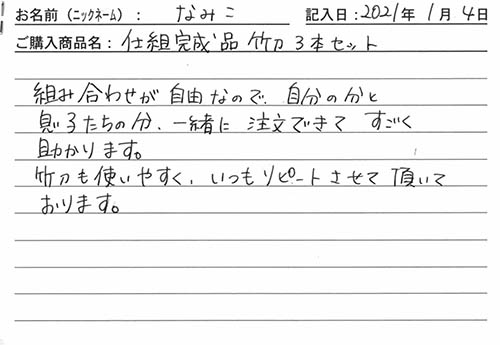 お名前（ニックネーム）： なみこ 記入日：2021年 1月 4日
ご購入商品名：仕組完成品 竹刀 3本セット
組み合わせが自由なので、自分の分と
息子たちの分、一緒に注文できて すごく
助かります。
竹刀も使いやすく、いつもリピートさせて頂いて
おります。